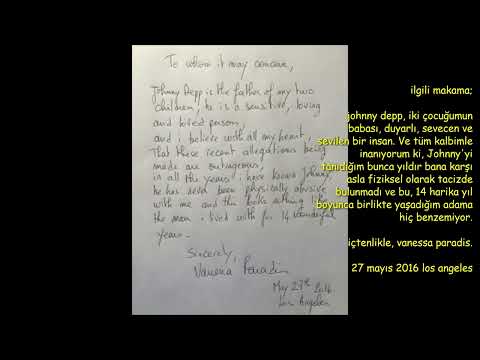 To whom it may concern,
Johnny Depp is the father of my two
children, he is a sensitive, loving
and loved person,
and i believe with all my heart,
That these recent allegations being
made are outrageous,
in all the years i have known Johnny,
he has never been physically abusive
with me and this looks nothing like
the man i lived with for 14 wonderful
years.
Sincerely,
Vanessa Paradis
May 27th 2016
Los Angeles
ilgili makama;
johnny depp, iki çocuğumun
babası, duyarlı, sevecen ve
sevilen bir insan. Ve tüm kalbimle
inanıyorum ki, Johnny'yi
tanıdığım bunca yıldır bana karşı
asla fiziksel olarak tacizde
bulunmadı ve bu, 14 harika yıl
boyunca birlikte yaşadığım adama
hiç benzemiyor.
içtenlikle, vanessa paradis.
27 mayıs 2016 los angeles